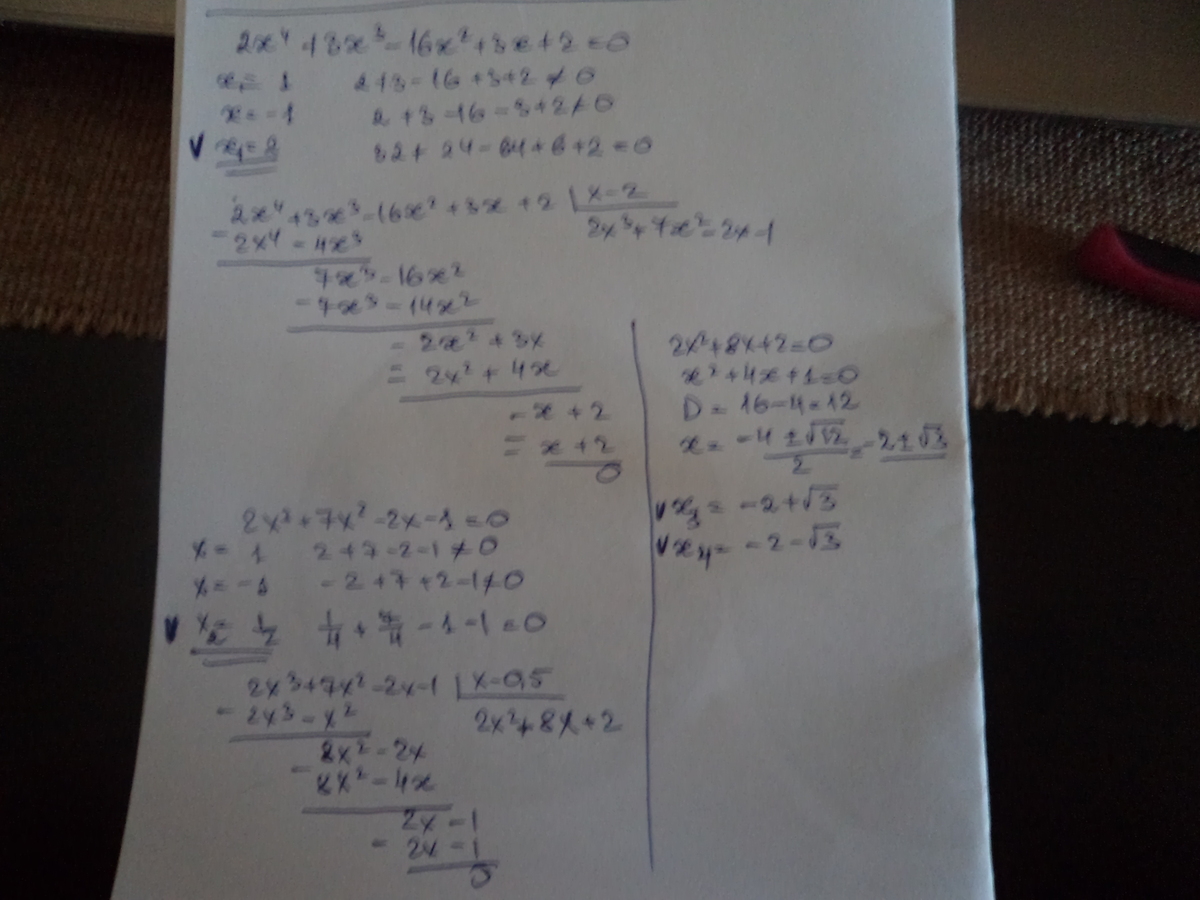 2x⁴ + 3x³ - 16x² + 3x + 2 = 0
x = 1 2 + 3 - 16 + 3 + 2 ≠ 0
x = -1 2 + 3 - 16 - 3 + 2 ≠ 0
v x₁ = 2 32 + 24 - 64 + 6 + 2 = 0
2x⁴ + 3x³ - 16x² + 3x + 2 | x - 2
- 2x⁴ - 4x³ 2x³ + 7x² - 2x - 1
7x³ - 16x²
- 7x³ - 14x²
- 2x² + 3x
= 2x² + 4x
- x + 2
= x + 2
0
2x³ + 7x² - 2x - 1 = 0
x = 1 2 + 7 - 2 - 1 ≠ 0
x = -1 - 2 + 7 + 2 - 1 ≠ 0
v x₂ = 1/2 1/4 + 7/4 - 1 - 1 = 0
2x³ + 7x² - 2x - 1 | x - 0,5
- 2x³ - x² 2x² + 8x + 2
8x² - 2x
- 8x² - 4x
2x - 1
- 2x - 1
0
2x² + 8x + 2 = 0
x² + 4x + 1 = 0
D = 16 - 4 = 12
x = (-4 ± √12)/2 = -2 ± √3
v x₃ = -2 + √3
v x₄ = -2 - √3